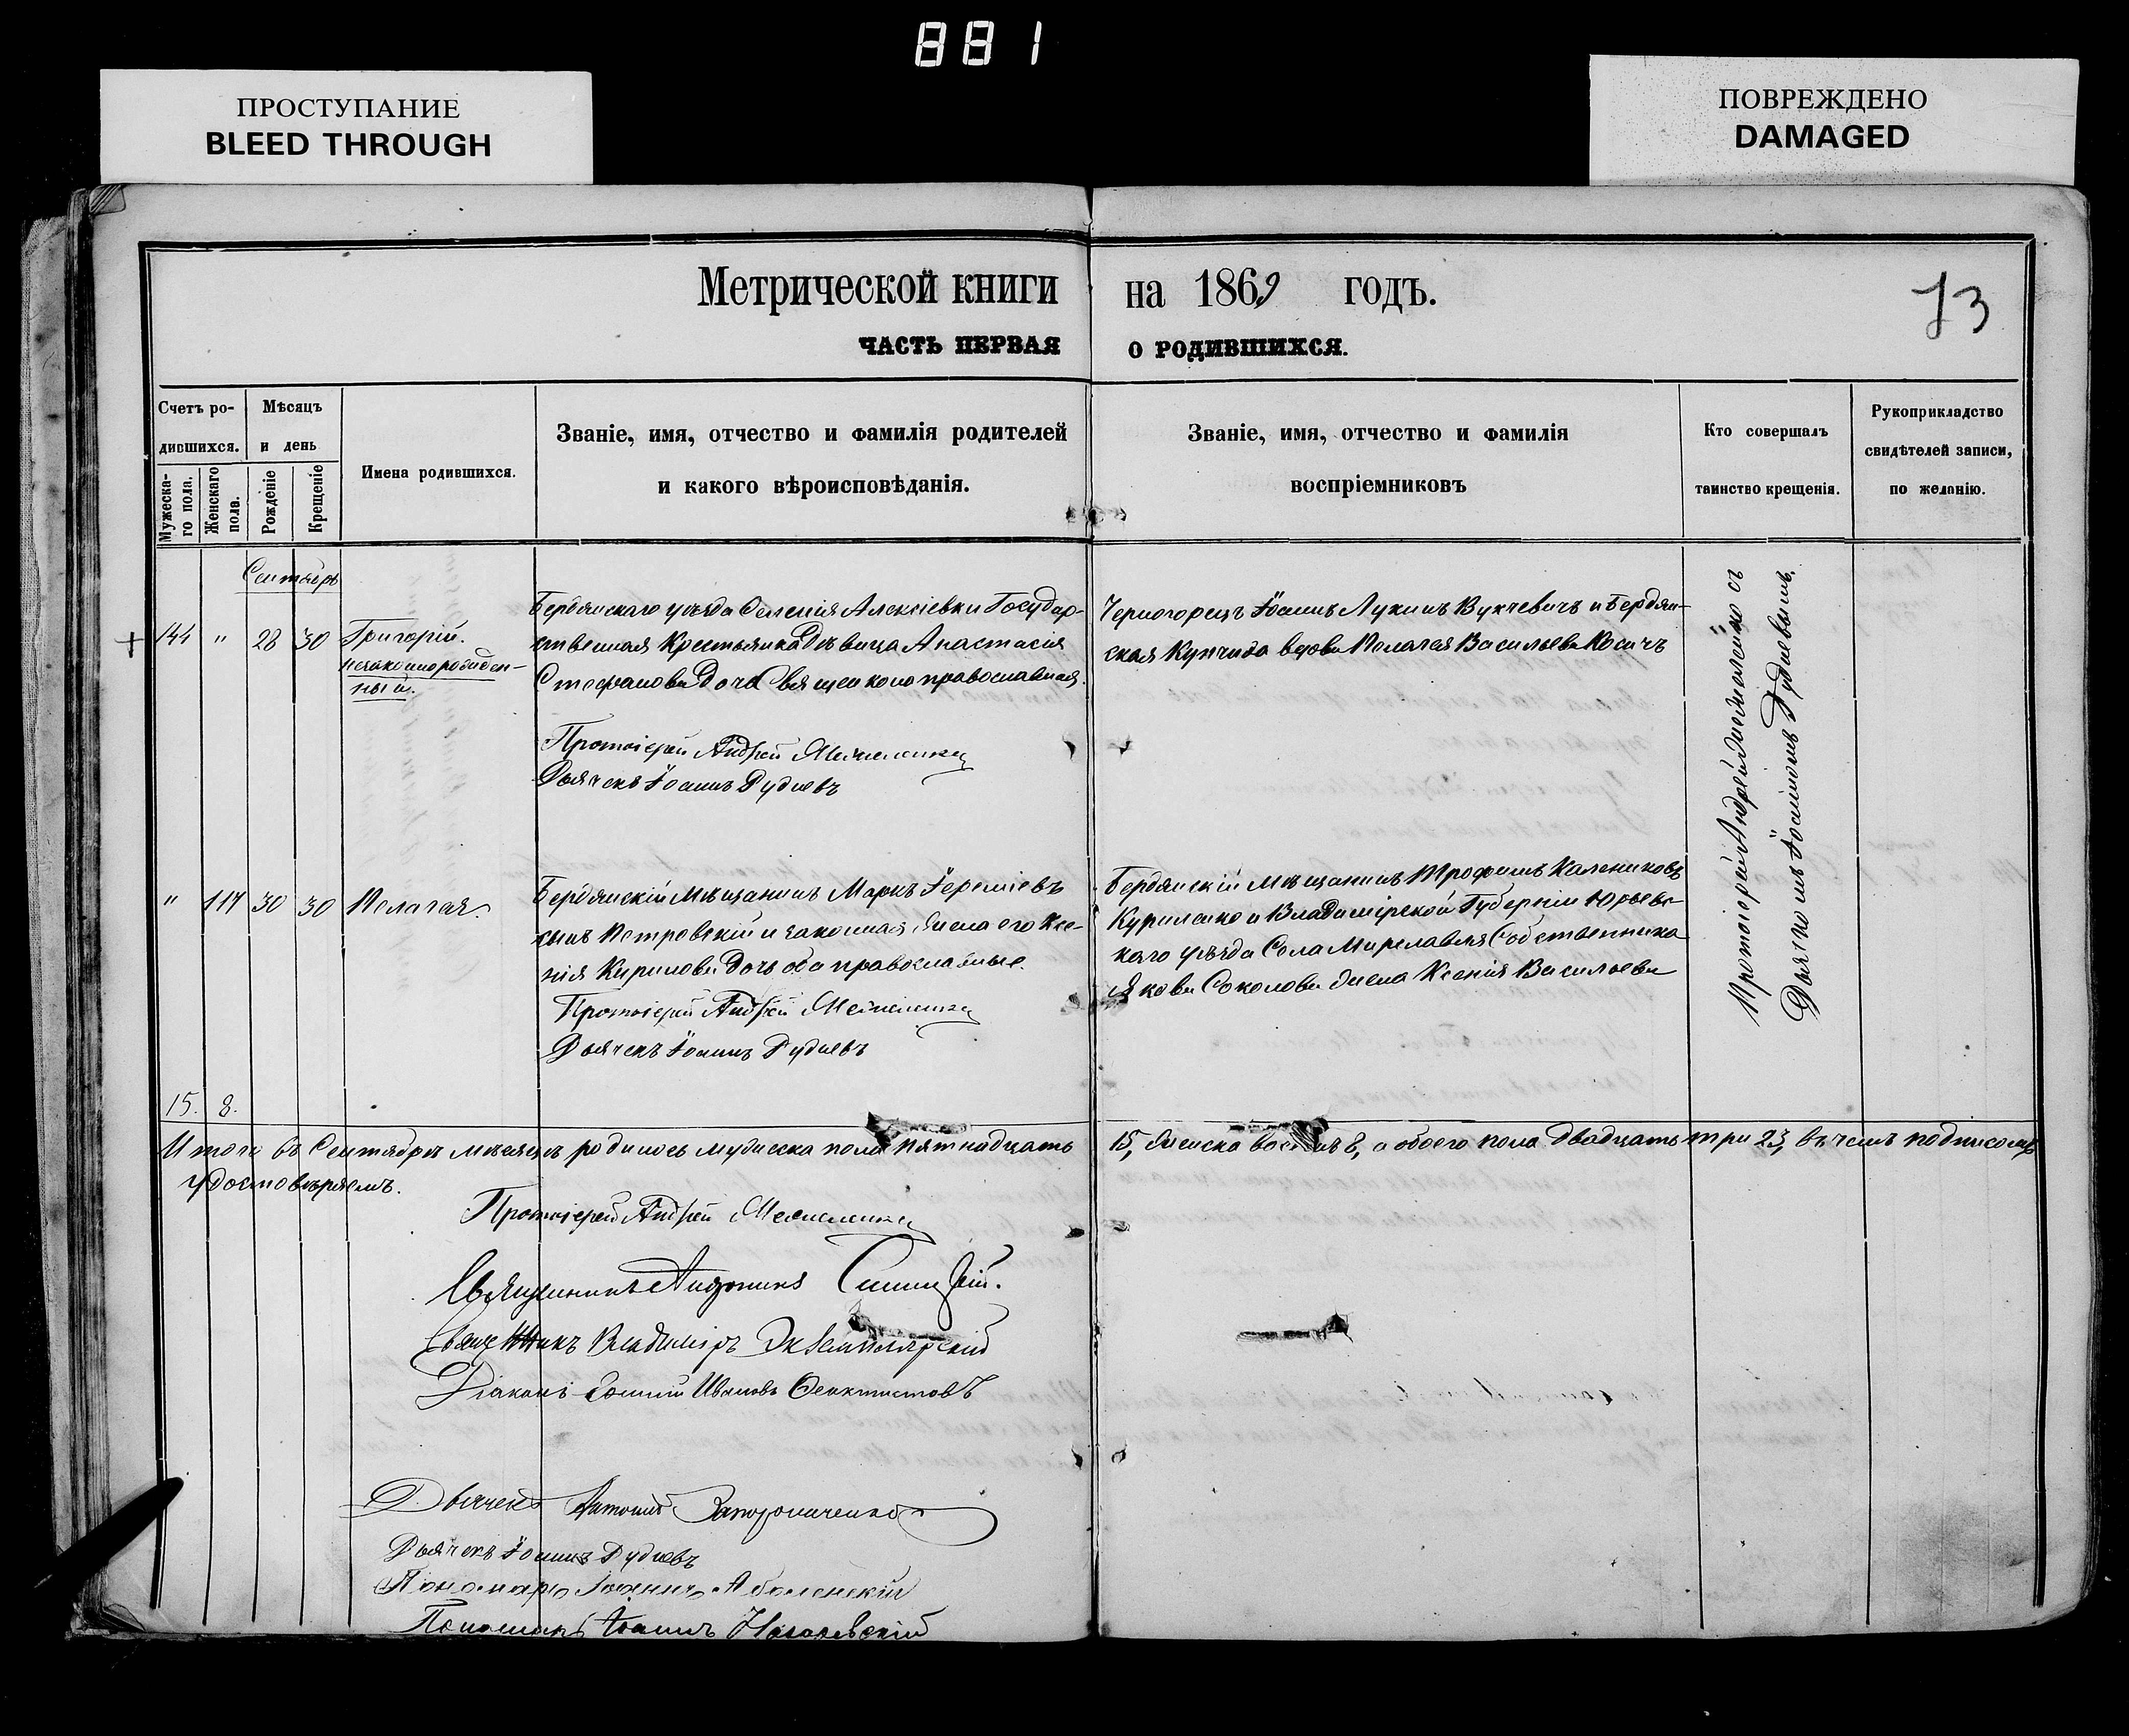 881
ПРОСТУПАНИЕ
BLEED THROUGH
ПОВРЕЖДЕНО
DAMAGED
Метрической книги на 1869 годъ.
73
ЧАСТЬ ПЕРВАЯ О РОДИВШИХСЯ.
Счетъ родившихся.
Мужескаго пола.
Женскаго пола.
Мѣсяцъ и день
Рожденіе
Крещеніе
Имена родившихся.
Званіе, имя, отчество и фамилія родителей
и какого вѣроисповѣданія.
Званіе, имя, отчество и фамилія
воспріемниковъ
Кто совершалъ
таинство крещенія.
Рукоприкладство
свидѣтелей записи,
по желанію.
Сентябрь
144 " 28 30 Григорій.
незаконнорожден-
ный.
Бердянскаго уѣзда Селенія Алексіевки Государ-
ственная Крестьянка Дѣвица Анастасія
Стефанова Дочь православная.
Протоіерей Андрей
Дьячекъ Іоаннъ Рудневъ
Черногорецъ Іоаннъ Лукинъ Вукчевичъ и Бердян-
ская Купчиха вдова Пелагея Васильева Косичъ
" 117 30 30 Пелагея.
Бердянскій Мѣщанинъ Маркъ Іереміевъ
сынъ Петровскій и законная жена его Ксе-
нія Кирилова Дочь оба православные.
Протоіерей Андрей
Дьячекъ Іоаннъ Рудневъ
Бердянскій Мѣщанинъ Трофимъ Калениковъ
Куриленко и Владимірской Губерніи Юрьевс-
каго уѣзда Села Мирславля Собственника
Якова Соколова жена Ксенія Васильева
Протоіерей Андрей съ
Дьячкомъ Іоанномъ Рудневымъ.
15. 8.
Итого въ Сентябрѣ мѣсяцѣ родилось мужеска пола пятнадцать 15, женска восемь 8, а обоего пола двадцать три 23, въ чемъ подписомъ
удостовѣряемъ.
Протоіерей Андрей
Священникъ
Священникъ Владиміръ Экземплярскій
Діаконъ Ивановъ Феоктистовъ
Дьячекъ Антоній
Дьячекъ Іоаннъ Рудневъ
Пономарь Іоаннъ Аболенскій
Пономарь Іоаннъ